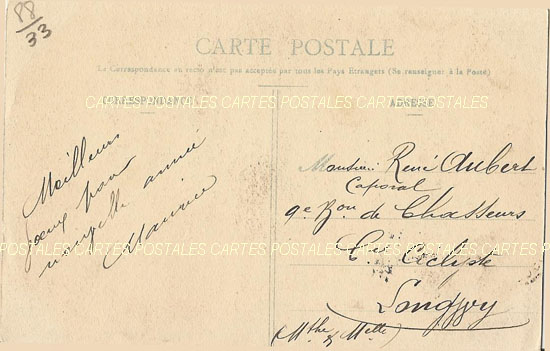 88
33
CARTE POSTALE
La Correspondance au recto n'est pas acceptée par tous les Pays Etrangers (Se renseigner à la Poste)
CORRESPONDANCE
ADRESSE
CARTES POSTALES CARTES POSTALES CARTES POSTALES
Meilleurs
vœux pour
nouvelle année
Maurice
Monsieur René Aubert
Caporal
9e Bon de Chasseurs
Cie Cycliste
Longwy
(Mthe & Mlle)